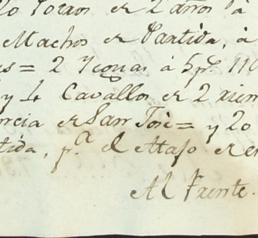 20 Toros de 2 años à
Machos de Partida, à
= 2 Yeguas à 5 p.s 11
y 4 Cavallos de 2 rien
rcia de San Jose = y 20
tida, p.a el Atajo de
Al Frente.